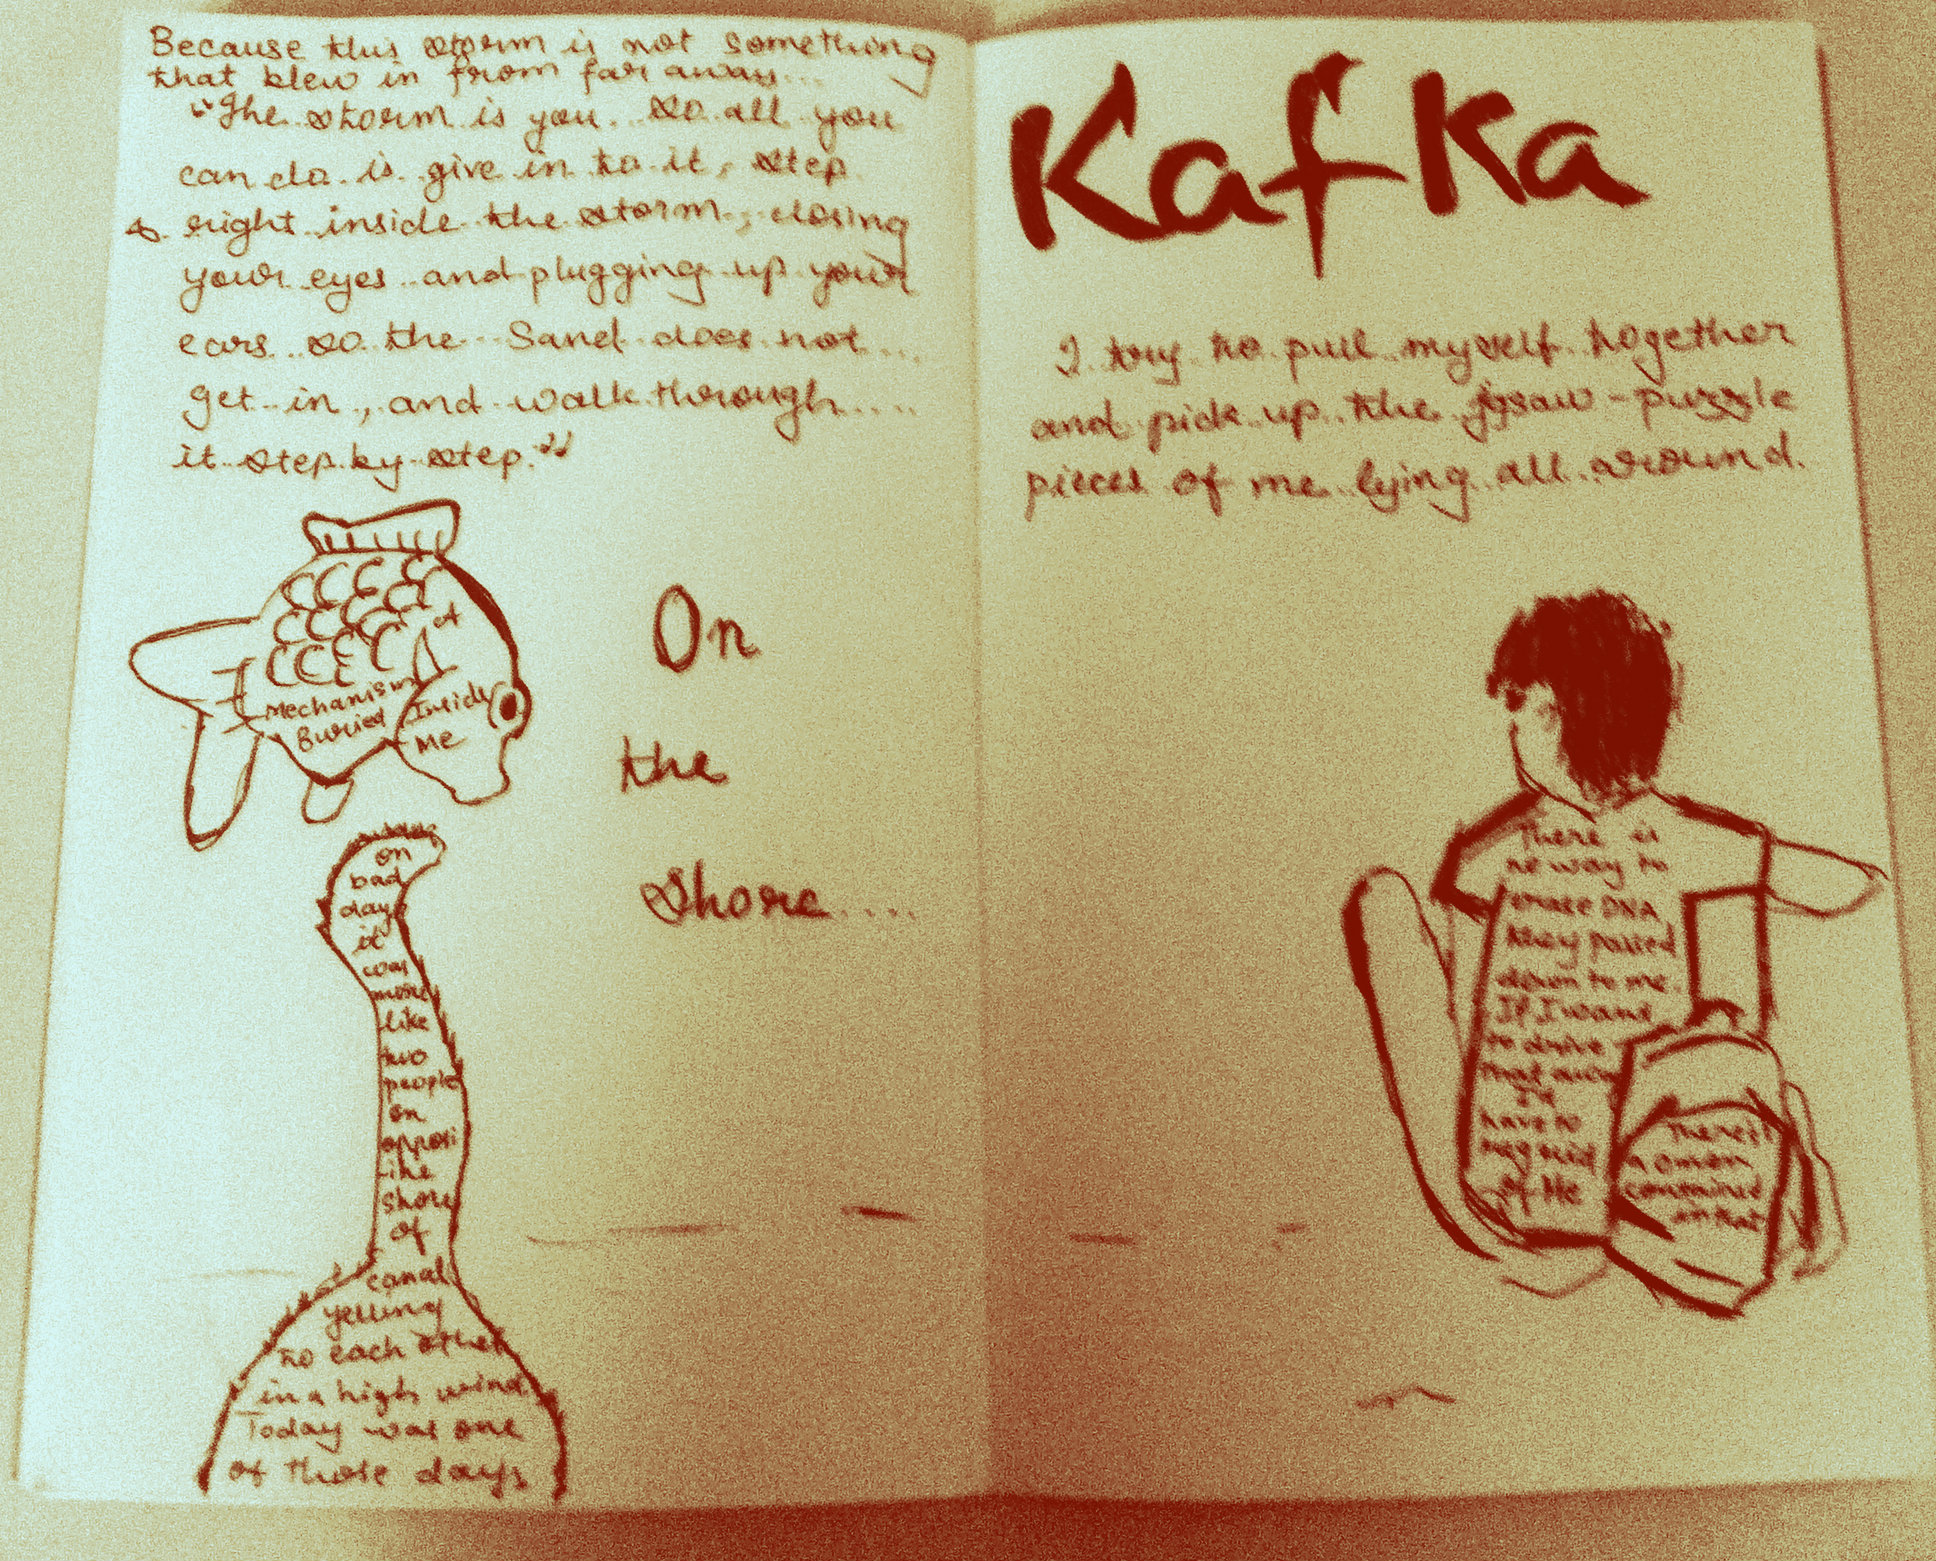 Because this storm is not something
that blew in from far away...
"The storm is you. So all you
can do is give in to it, step
right inside the storm, closing
your eyes and plugging up your
ears so the Sand does not...
get in, and walk through....
it step by step."
Mechanism
Buried Inside
Me
on
bad
days
it
was
more
like
two
people
on
opposi
the
shore
of
canal
yelling
to each other
in a high wind
Today was one
of those days
On
the
Shore....
Kafka
I try to pull myself together
and pick up the jgsaw-puzzle
pieces of me lying all around.
There is
no way to
erase DNA
they passed
down to me.
If I want
to drive
that away
I'd
have to
get rid
of Me
There is
an omen
contained
in that